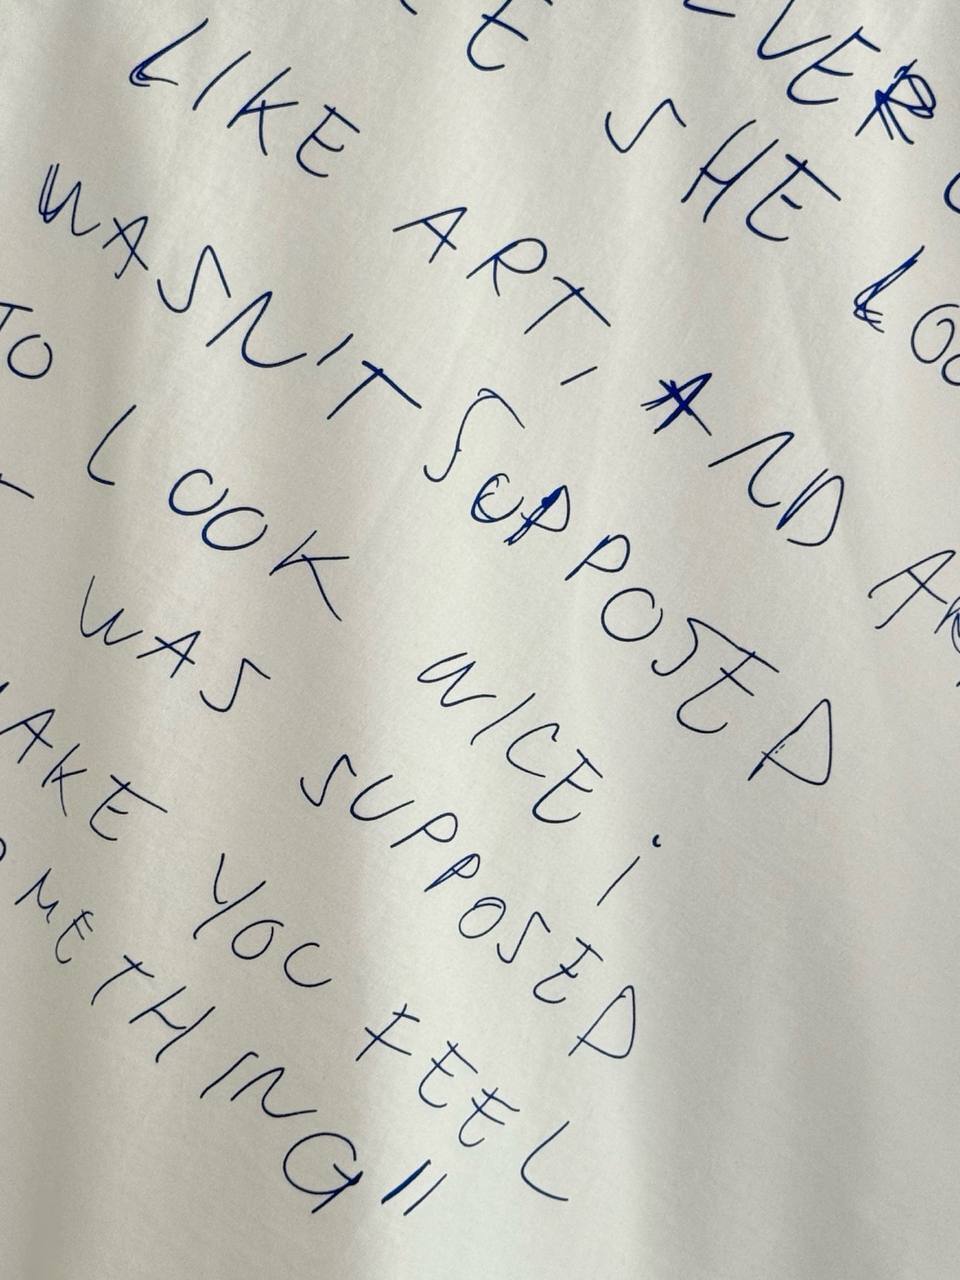 EVER
SHE LOO
LIKE ART, AND AR
WASN'T SUPPOSED
TO LOOK NICE;
WAS SUPPOSED
MAKE YOU FEEL
OMETHING"